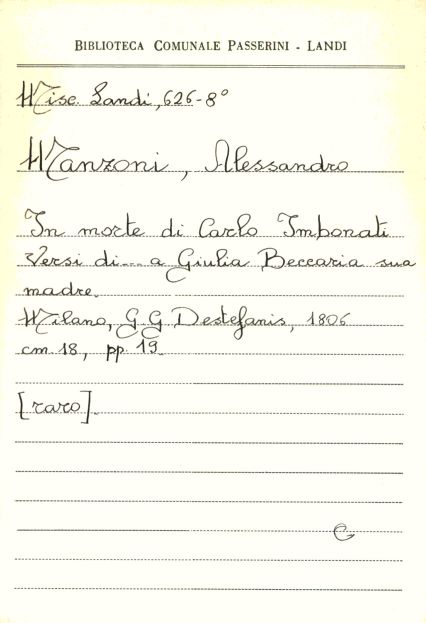 BIBLIOTECA COMUNALE PASSERINI - LANDI
Misc. Landi, 626-8°
Manzoni, Alessandro
In morte di Carlo Imbonati
Versi di... a Giulia Beccaria sua
madre.
Milano, G. G Destefanis, 1806
cm. 18, pp 19.
[raro].